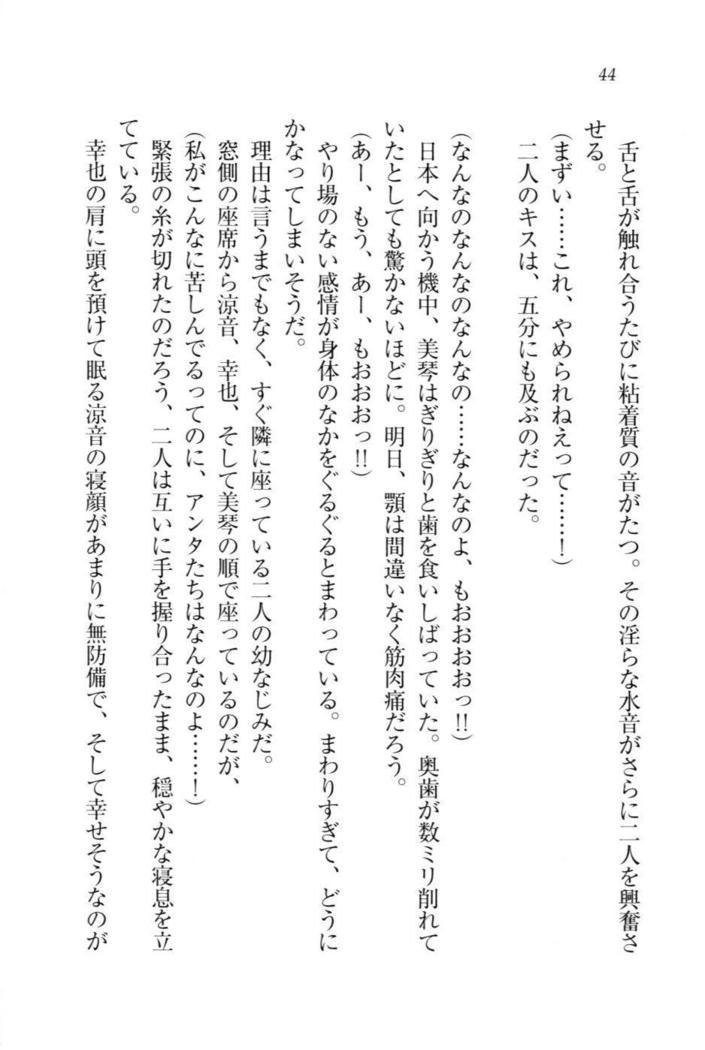 44
舌と舌が触れ合うたびに粘着質の音がたつ。その淫らな水音がさらに二人を興奮さ
せる。
(まずい……これ、やめられねえって……！)
二人のキスは、五分にも及ぶのだった。
(なんなのなんなのなんなの……なんなのよ、もおおおおっ!!)
日本へ向かう機中、美琴はぎりぎりと歯を食いしばっていた。奥歯が数ミリ削れて
いたとしても驚かないほどに。明日、顎は間違いなく筋肉痛だろう。
(あー、もう、あー、もおおおっ!!)
やり場のない感情が身体のなかをぐるぐるとまわっている。まわりすぎて、どうに
かなってしまいそうだ。
理由は言うまでもなく、すぐ隣に座っている二人の幼なじみだ。
窓側の座席から涼音、幸也、そして美琴の順で座っているのだが、
(私がこんなに苦しんでるってのに、アンタたちはなんなのよ……！)
緊張の糸が切れたのだろう、二人は互いに手を握り合ったまま、穏やかな寝息を立
てている。
幸也の肩に頭を預けて眠る涼音の寝顔があまりに無防備で、そして幸せそうなのが